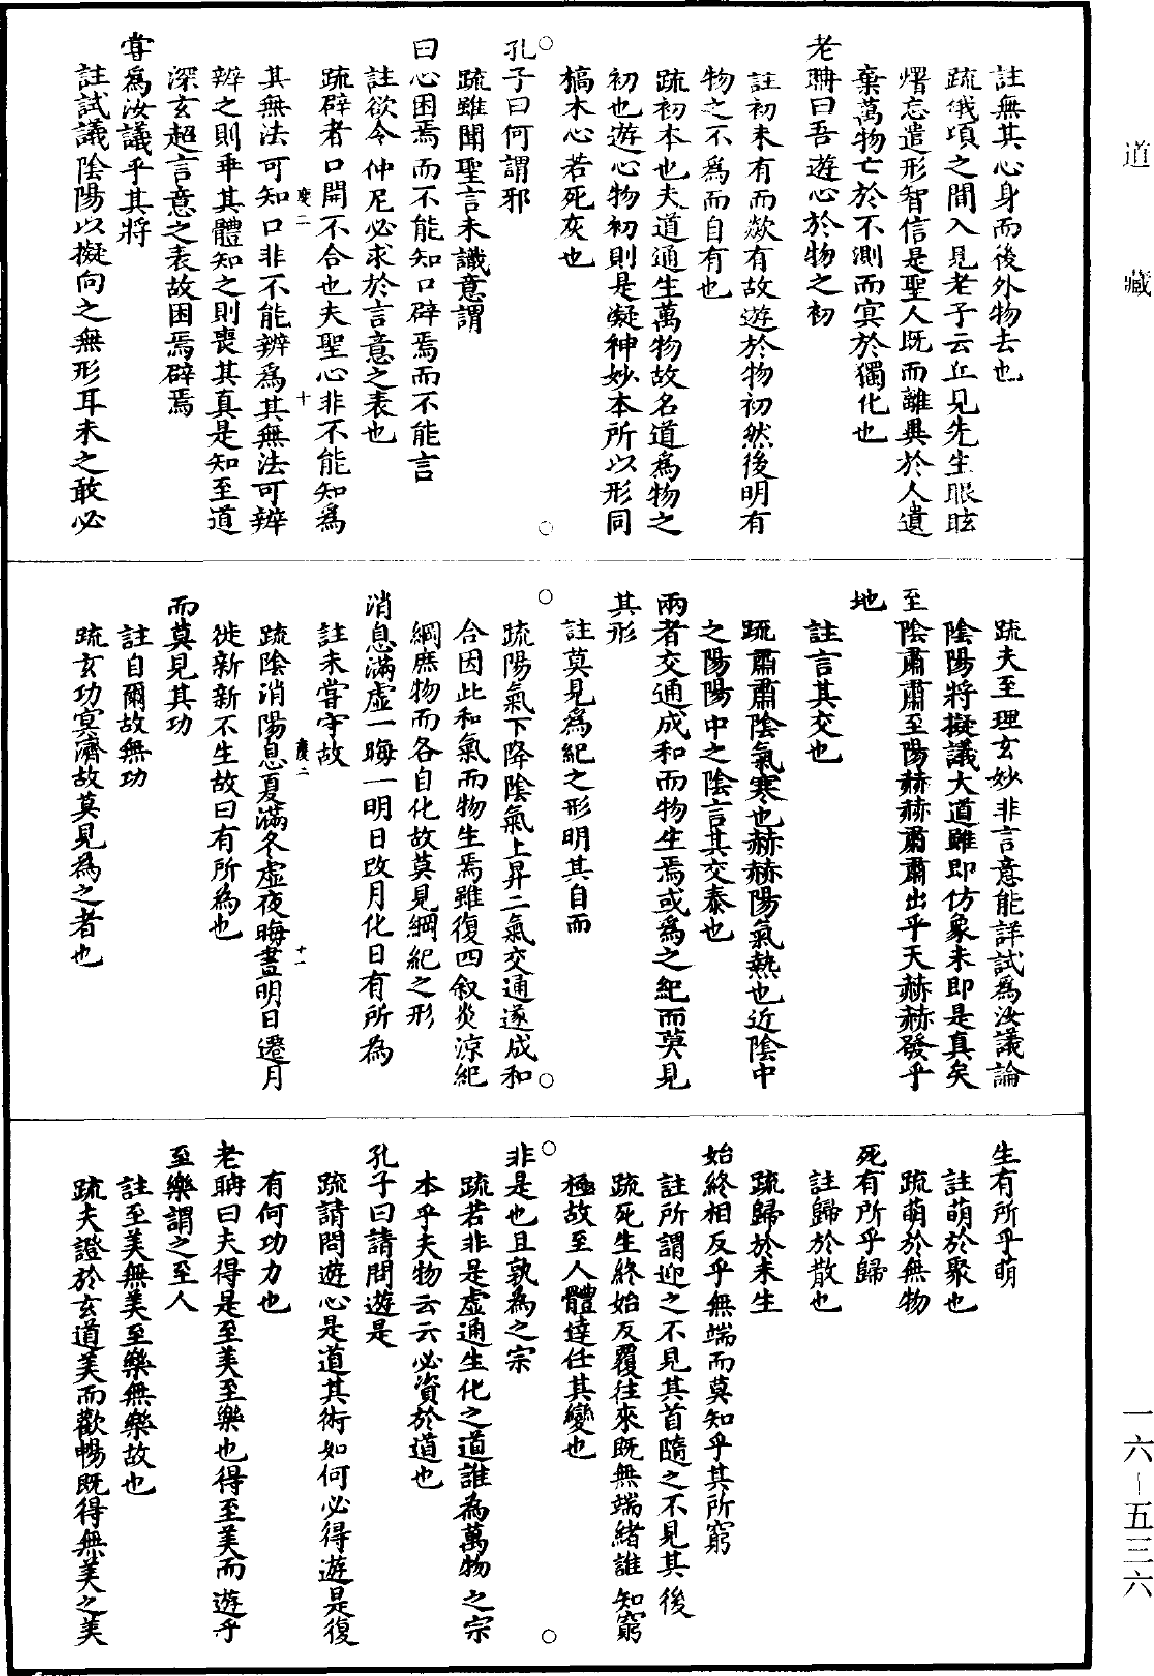 道藏
註無其心身而後外物去也
疏俄頃之間入見老子云丘見先生眼眩
熠忘遣形智信是聖人既而離異於人遺
棄萬物亡於不測而冥於獨化也
老聃曰吾遊心於物之初
註初未有而歘有故遊於物初然後明有
物之不爲而自有也
疏初本也夫道通生萬物故名道爲物之
初也遊心物初則是凝神妙本所以形同
槁木心若死灰也
孔子曰何謂邪
疏雖聞聖言未識意謂
曰心困焉而不能知口辟焉而不能言
註欲令仲尼必求於言意之表也
疏辟者口開不合也夫聖心非不能知爲
其無法可知口非不能辨爲其無法可辨
慶二 十
辨之則乖其體知之則喪其真是知至道
深玄超言意之表故困焉辟焉
嘗爲汝議乎其將
註試議陰陽以擬向之無形耳未之敢必
疏夫至理玄妙非言意能詳試爲汝議論
陰陽將擬議大道雖即仿象未即是真矣
至陰肅肅至陽赫赫肅肅出乎天赫赫發乎
地
註言其交也
疏肅肅陰氣寒也赫赫陽氣熱也近陰中
之陽陽中之陰言其交泰也
兩者交通成和而物生焉或爲之紀而莫見
其形
註莫見爲紀之形明其自而
疏陽氣下降陰氣上昇二氣交通遂成和
合因此和氣而物生焉雖復四叙炎涼紀
綱庶物而各自化故莫見綱紀之形
消息滿虛一晦一明日改月化日有所為
註未嘗守故
慶二 十一
疏陰消陽息夏滿冬虛夜晦晝明日遷月
徙新新不生故曰有所為也
而莫見其功
註自爾故無功
疏玄功冥濟故莫見為之者也
生有所乎萌
註萌於聚也
疏萌於無物
死有所乎歸
註歸於散也
疏歸於未生
始終相反乎無端而莫知乎其所窮
註所謂迎之不見其首隨之不見其後
疏死生終始反覆往來既無端緒誰知窮
極故至人體達任其變也
非是也且孰為之宗
疏若非是虛通生化之道誰為萬物之宗
本乎夫物云云必資於道也
孔子曰請問遊是
疏請問遊心是道其術如何必得遊是復
有何功力也
老聃曰夫得是至美至樂也得至美而遊乎
至樂謂之至人
註至美無美至樂無樂故也
疏夫證於玄道美而歡暢既得無美之美
一六-五三六